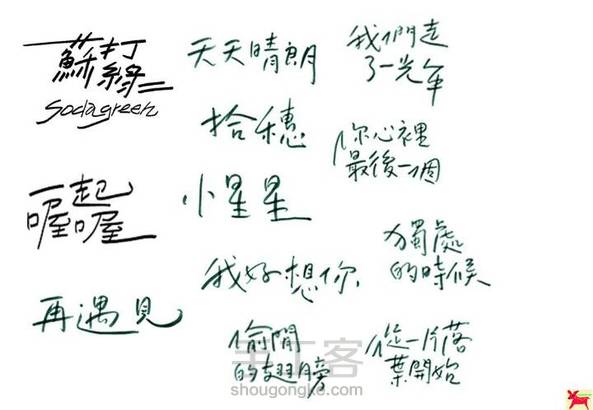 蘇打綠
sodagreen
天天晴朗
我們走
了一光年
拾穗
你心裡
最後一個
一起
喔喔
小星星
獨處
的時候
我好想你
再遇見
偷閒
的翅膀
從一片落
葉開始
手工客
shougongke.com